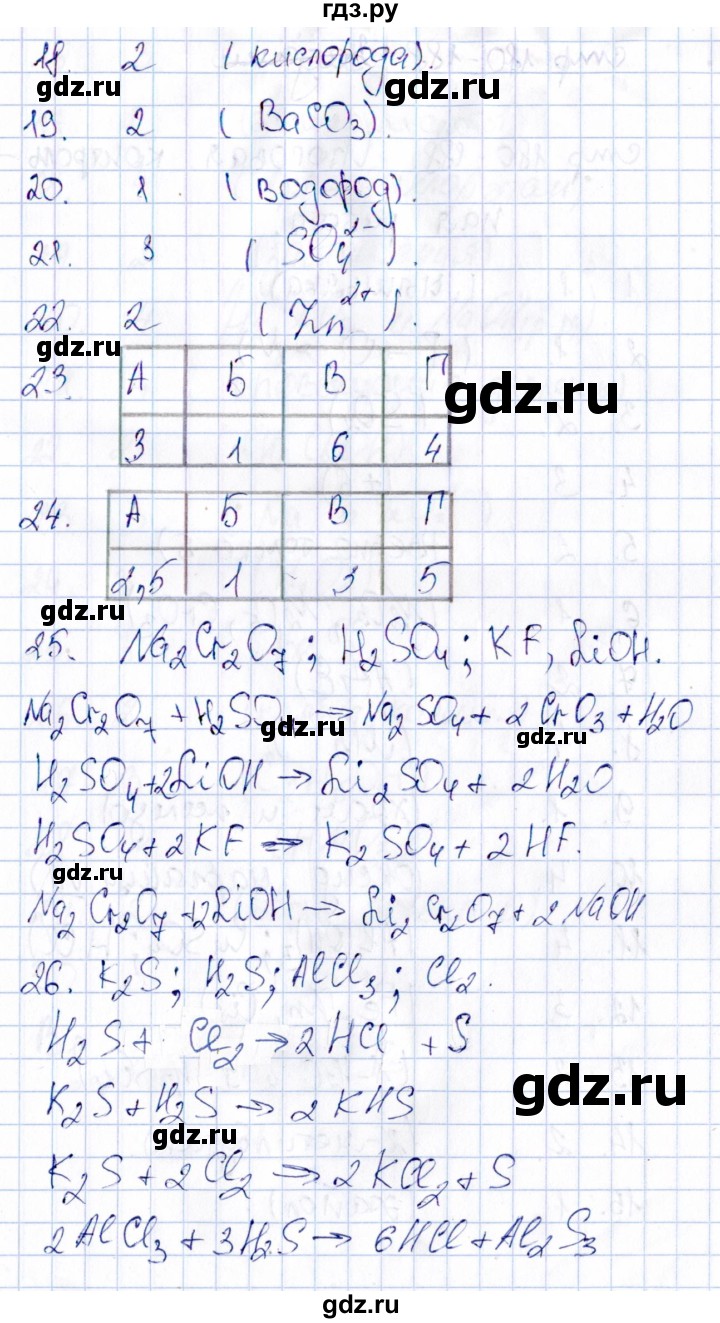 гдз.ру
18. 2 (кислорода).
gdz.ru gdz.ru
19. 2 (BaCO₃).
20. 1 (водород).
21. 3 (SO₄²⁻).
22. 2 (Zn²⁺).
gdz.ru
23. А Б В Г
gdz.ru
3 1 6 4
24. А Б В Г
2,5 1 3 5
gdz.ru
25. Na₂Cr₂O₇; H₂SO₄; KF, LiOH.
Na₂Cr₂O₇ + H₂SO₄ → Na₂SO₄ + 2CrO₃ + H₂O
gdz.ru gdz.ru
H₂SO₄ + 2LiOH → Li₂SO₄ + 2H₂O
H₂SO₄ + 2KF → K₂SO₄ + 2HF.
gdz.ru
Na₂Cr₂O₇ + 2LiOH → Li₂Cr₂O₇ + 2NaOH
26. K₂S; H₂S; AlCl₃; Cl₂.
gdz.ru
H₂S + Cl₂ → 2HCl + S
gdz.ru
K₂S + H₂S → 2KHS
gdz.ru
K₂S + 2Cl₂ → 2KCl₂ + S
2AlCl₃ + 3H₂S → 6HCl + Al₂S₃
gdz.ru
gdz.ru